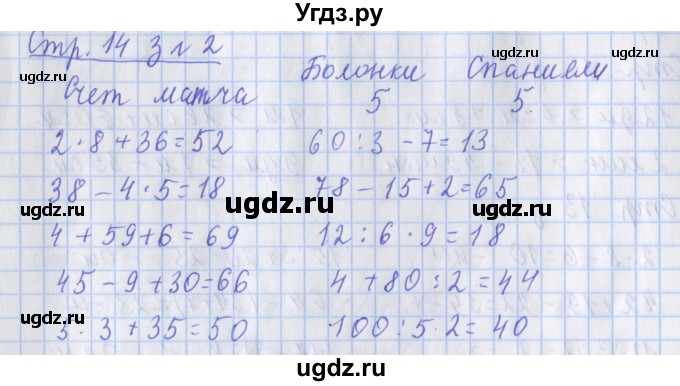 Угдз.ру
Стр. 14 З № 2
Счет матча Болонки Спаниели
5 5
2·8+36=52 60:3-7=13
38-4·5=18 78-15+2=65
4+59+6=69 12:6·9=18
45-9+30=66 4+80:2=44
5·3+35=50 100:5·2=40
ugdz.ru
ugdz.ru
ugdz.ru
ugdz.ru
ugdz.ru
ugdz.ru
ugdz.ru
ugdz.ru
ugdz.ru
ugdz.ru
ugdz.ru
ugdz.ru
Угдз.ру